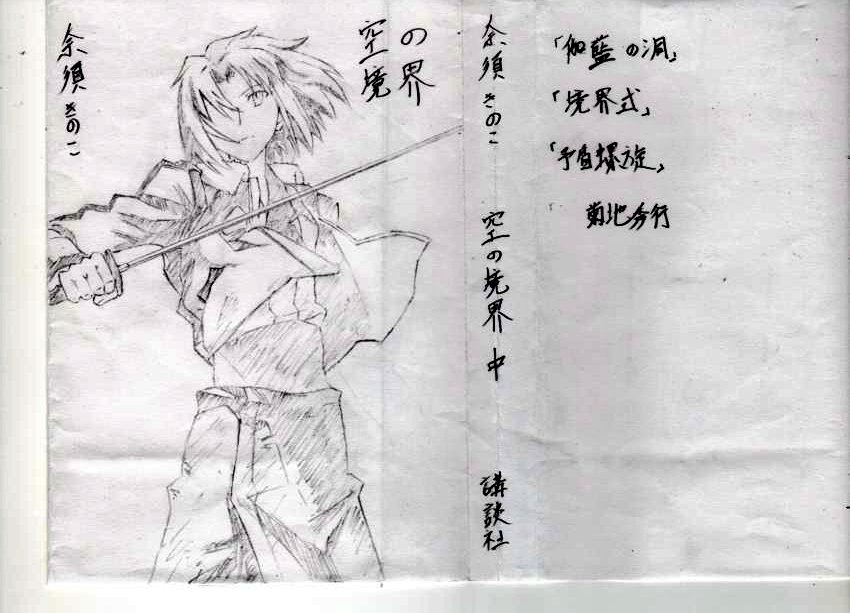 奈須きのこ
空の境界
奈須きのこ 空の境界 中 講談社
「伽藍の洞」
「境界式」
「矛盾螺旋」
菊地秀行